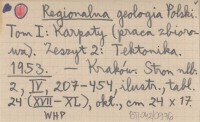 Regionalna geologia Polski.
Tom I: Karpaty (praca zbioro-
wa). Zeszyt 2: Tektonika.
1953. Kraków. Stron nlb.
2, IV, 207-454, ilustr., tabl.
24 (XVII - XL), okł., cm 24 x 17.
WHP